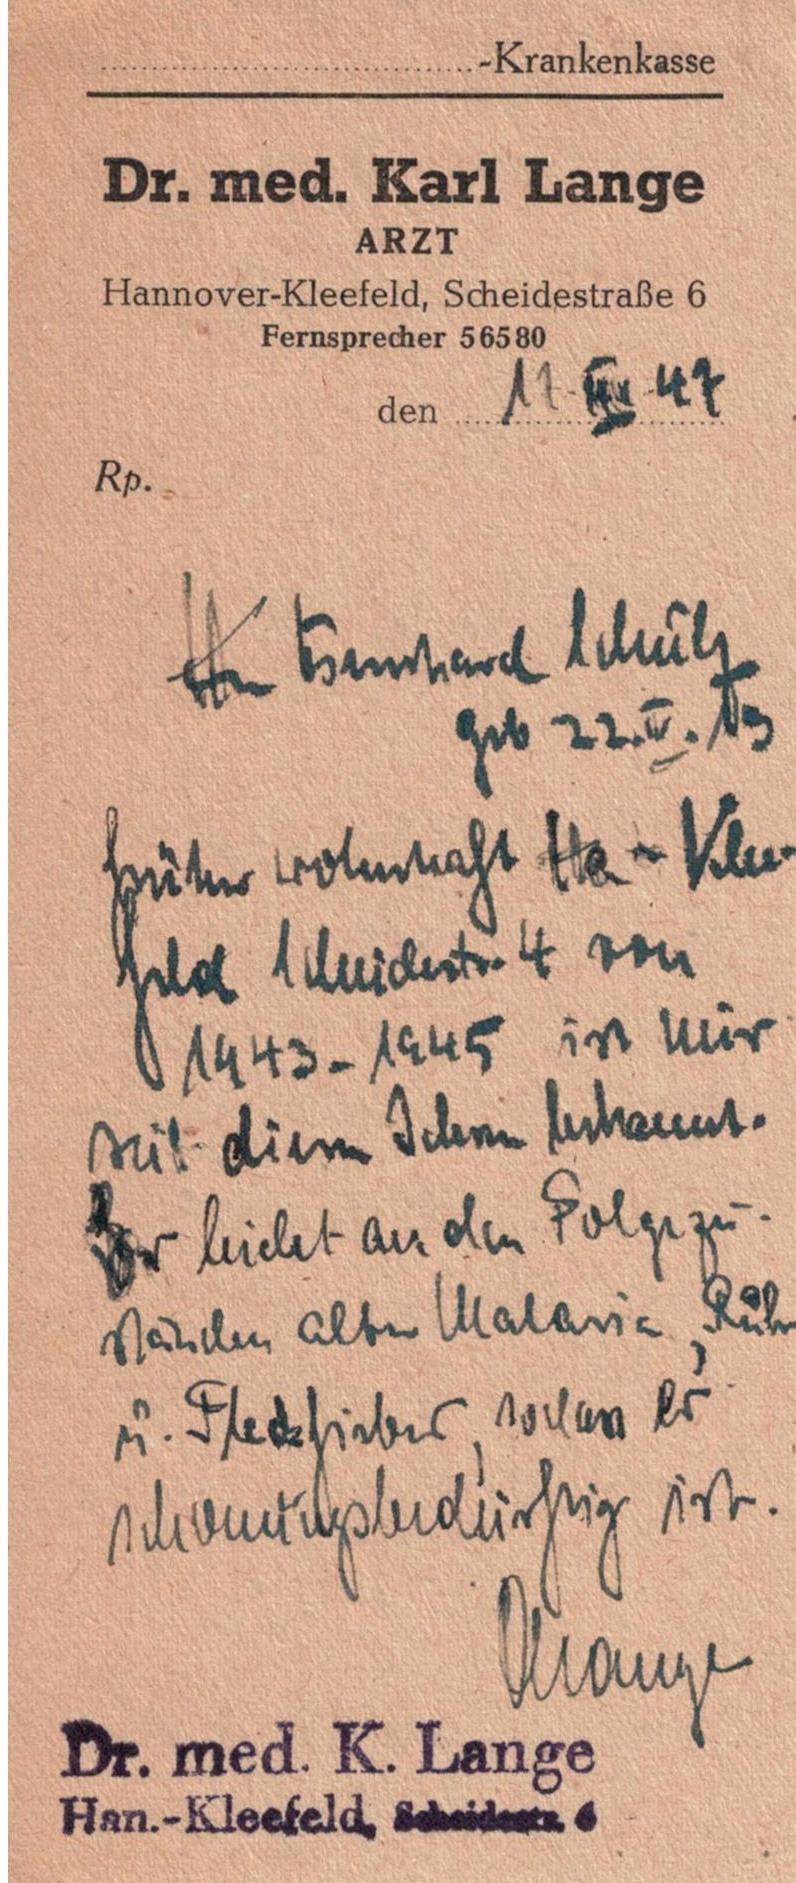 -Krankenkasse
Dr. med. Karl Lange
ARZT
Hannover-Kleefeld, Scheidestraße 6
Fernsprecher 56580
den 17. 47
Rp.
Schütz
geb 22. 13
früher wohnhaft Ha-Klee-
feld Scheidestr. 4 von
1943-1945 ist mir
seit diesen Jahren bekannt.
Er leidet an den Folgezu-
ständen alter Malaria, Ruhr
u. Fleckfieber, sodass er
schonungsbedürftig ist.
KLange
Dr. med. K. Lange
Han.-Kleefeld, Scheidestr. 6